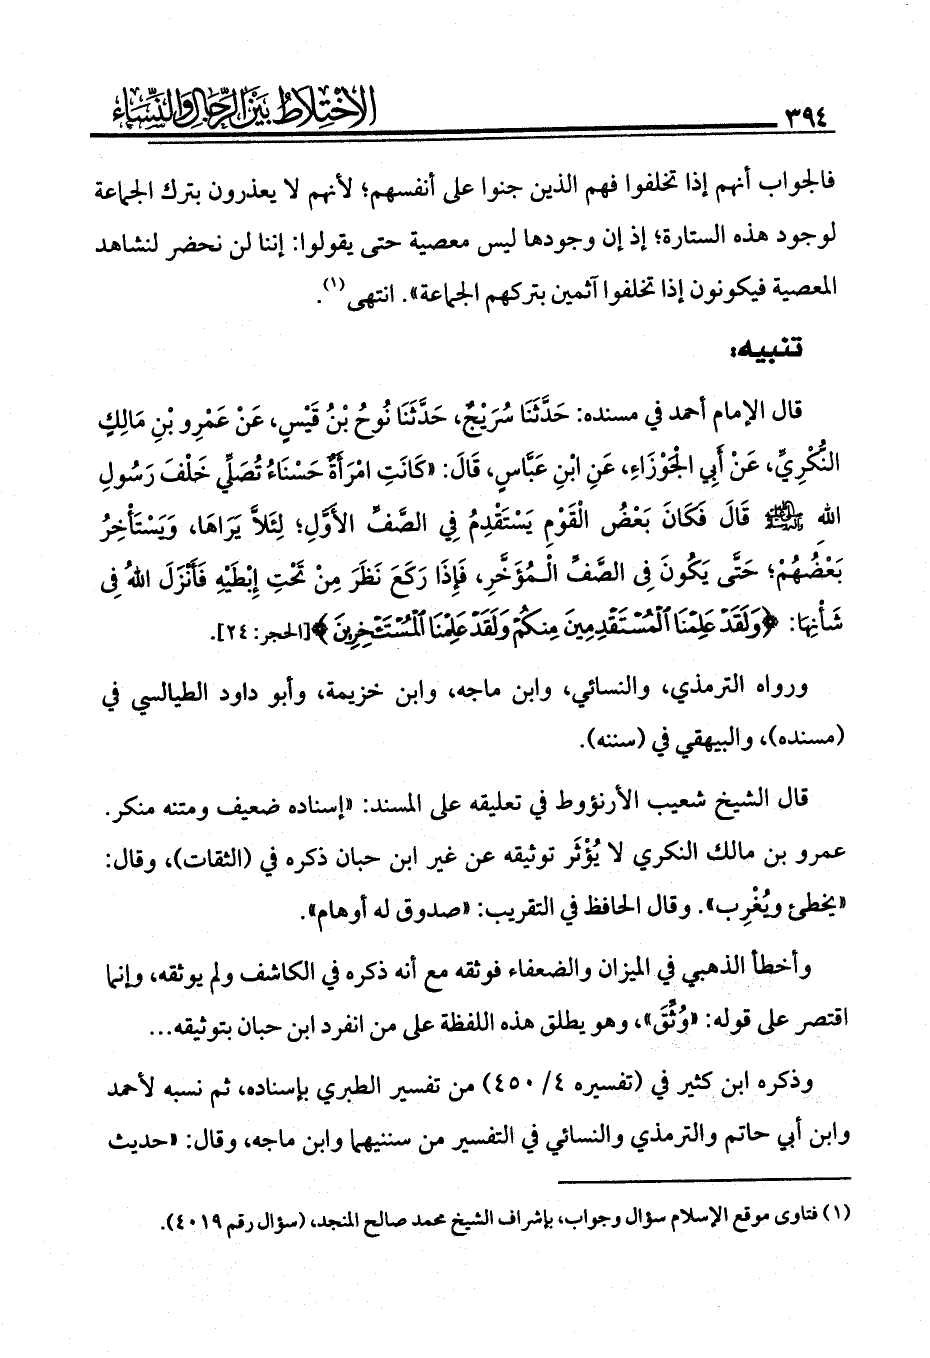 ٣٩٤
الاختلاط بين الرجال والنساء
فالجواب أنهم إذا تخلفوا فهم الذين جنوا على أنفسهم؛ لأنهم لا يعذرون بترك الجماعة
لوجود هذه الستارة؛ إذ إن وجودها ليس معصية حتى يقولوا: إننا لن نحضر لنشاهد
المعصية فيكونون إذا تخلفوا آثمين بتركهم الجماعة». انتهى(١).
تنبيه:
قال الإمام أحمد في مسنده: حَدَّثَنَا سُرَيْجٌ، حَدَّثَنَا نُوحُ بْنُ قَيْسٍ، عَنْ عَمْرِو بْنِ مَالِكٍ
النُّكْرِيِّ، عَنْ أَبِي الْجَوْزَاءِ، عَنِ ابْنِ عَبَّاسٍ، قَالَ: «كَانَتِ امْرَأَةٌ حَسْنَاءُ تُصَلِّي خَلْفَ رَسُولِ
اللهِ ﷺ قَالَ فَكَانَ بَعْضُ الْقَوْمِ يَسْتَقْدِمُ فِي الصَّفِّ الأَوَّلِ؛ لِئَلاَّ يَرَاهَا، وَيَسْتَأْخِرُ
بَعْضُهُمْ؛ حَتَّى يَكُونَ فِى الصَّفِّ الْمُؤَخَّرِ، فَإِذَا رَكَعَ نَظَرَ مِنْ تَحْتِ إِبْطَيْهِ فَأَنْزَلَ اللهُ فِى
شَأْنِهَا: ﴿وَلَقَدْ عَلِمْنَا ٱلْمُسْتَقْدِمِينَ مِنكُمْ وَلَقَدْ عَلِمْنَا ٱلْمُسْتَـْٔخِرِينَ﴾[الحجر: ٢٤].
ورواه الترمذي، والنسائي، وابن ماجه، وابن خزيمة، وأبو داود الطيالسي في
(مسنده)، والبيهقي في (سننه).
قال الشيخ شعيب الأرنؤوط في تعليقه على المسند: «إسناده ضعيف ومتنه منكر.
عمرو بن مالك النكري لا يُؤْثَر توثيقه عن غير ابن حبان ذكره في (الثقات)، وقال:
«يخطئ ويُغْرِب». وقال الحافظ في التقريب: «صدوق له أوهام».
وأخطأ الذهبي في الميزان والضعفاء فوثقه مع أنه ذكره في الكاشف ولم يوثقه، وإنما
اقتصر على قوله: «وُثِّقَ»، وهو يطلق هذه اللفظة على من انفرد ابن حبان بتوثيقه...
وذكره ابن كثير في (تفسيره ٤/ ٤٥٠) من تفسير الطبري بإسناده، ثم نسبه لأحمد
وابن أبي حاتم والترمذي والنسائي في التفسير من سننيهما وابن ماجه، وقال: «حديث
(١) فتاوى موقع الإسلام سؤال وجواب، بإشراف الشيخ محمد صالح المنجد، (سؤال رقم ٤٠١٩).